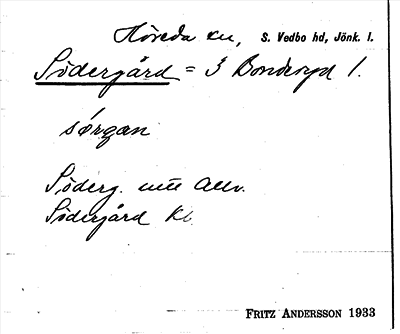 Höreda sn, S. Vedbo hd, Jönk. l.
Södergård = 3 Bonderyd 1.
sørgan
Söderg. Allv.
Södergård Kb.
FRITZ ANDERSSON 1933